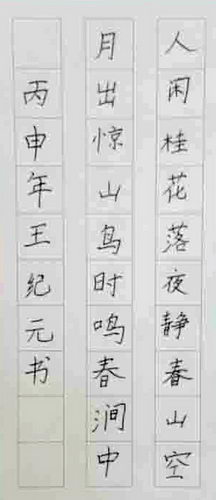 人闲桂花落夜静春山空
月出惊山鸟时鸣春涧中
丙申年王纪元书